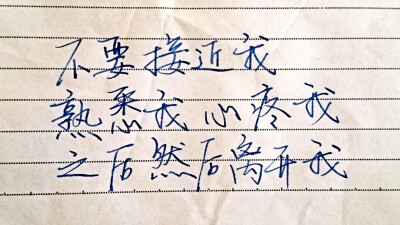 不要接近我
熟悉我心疼我
之后然后离开我